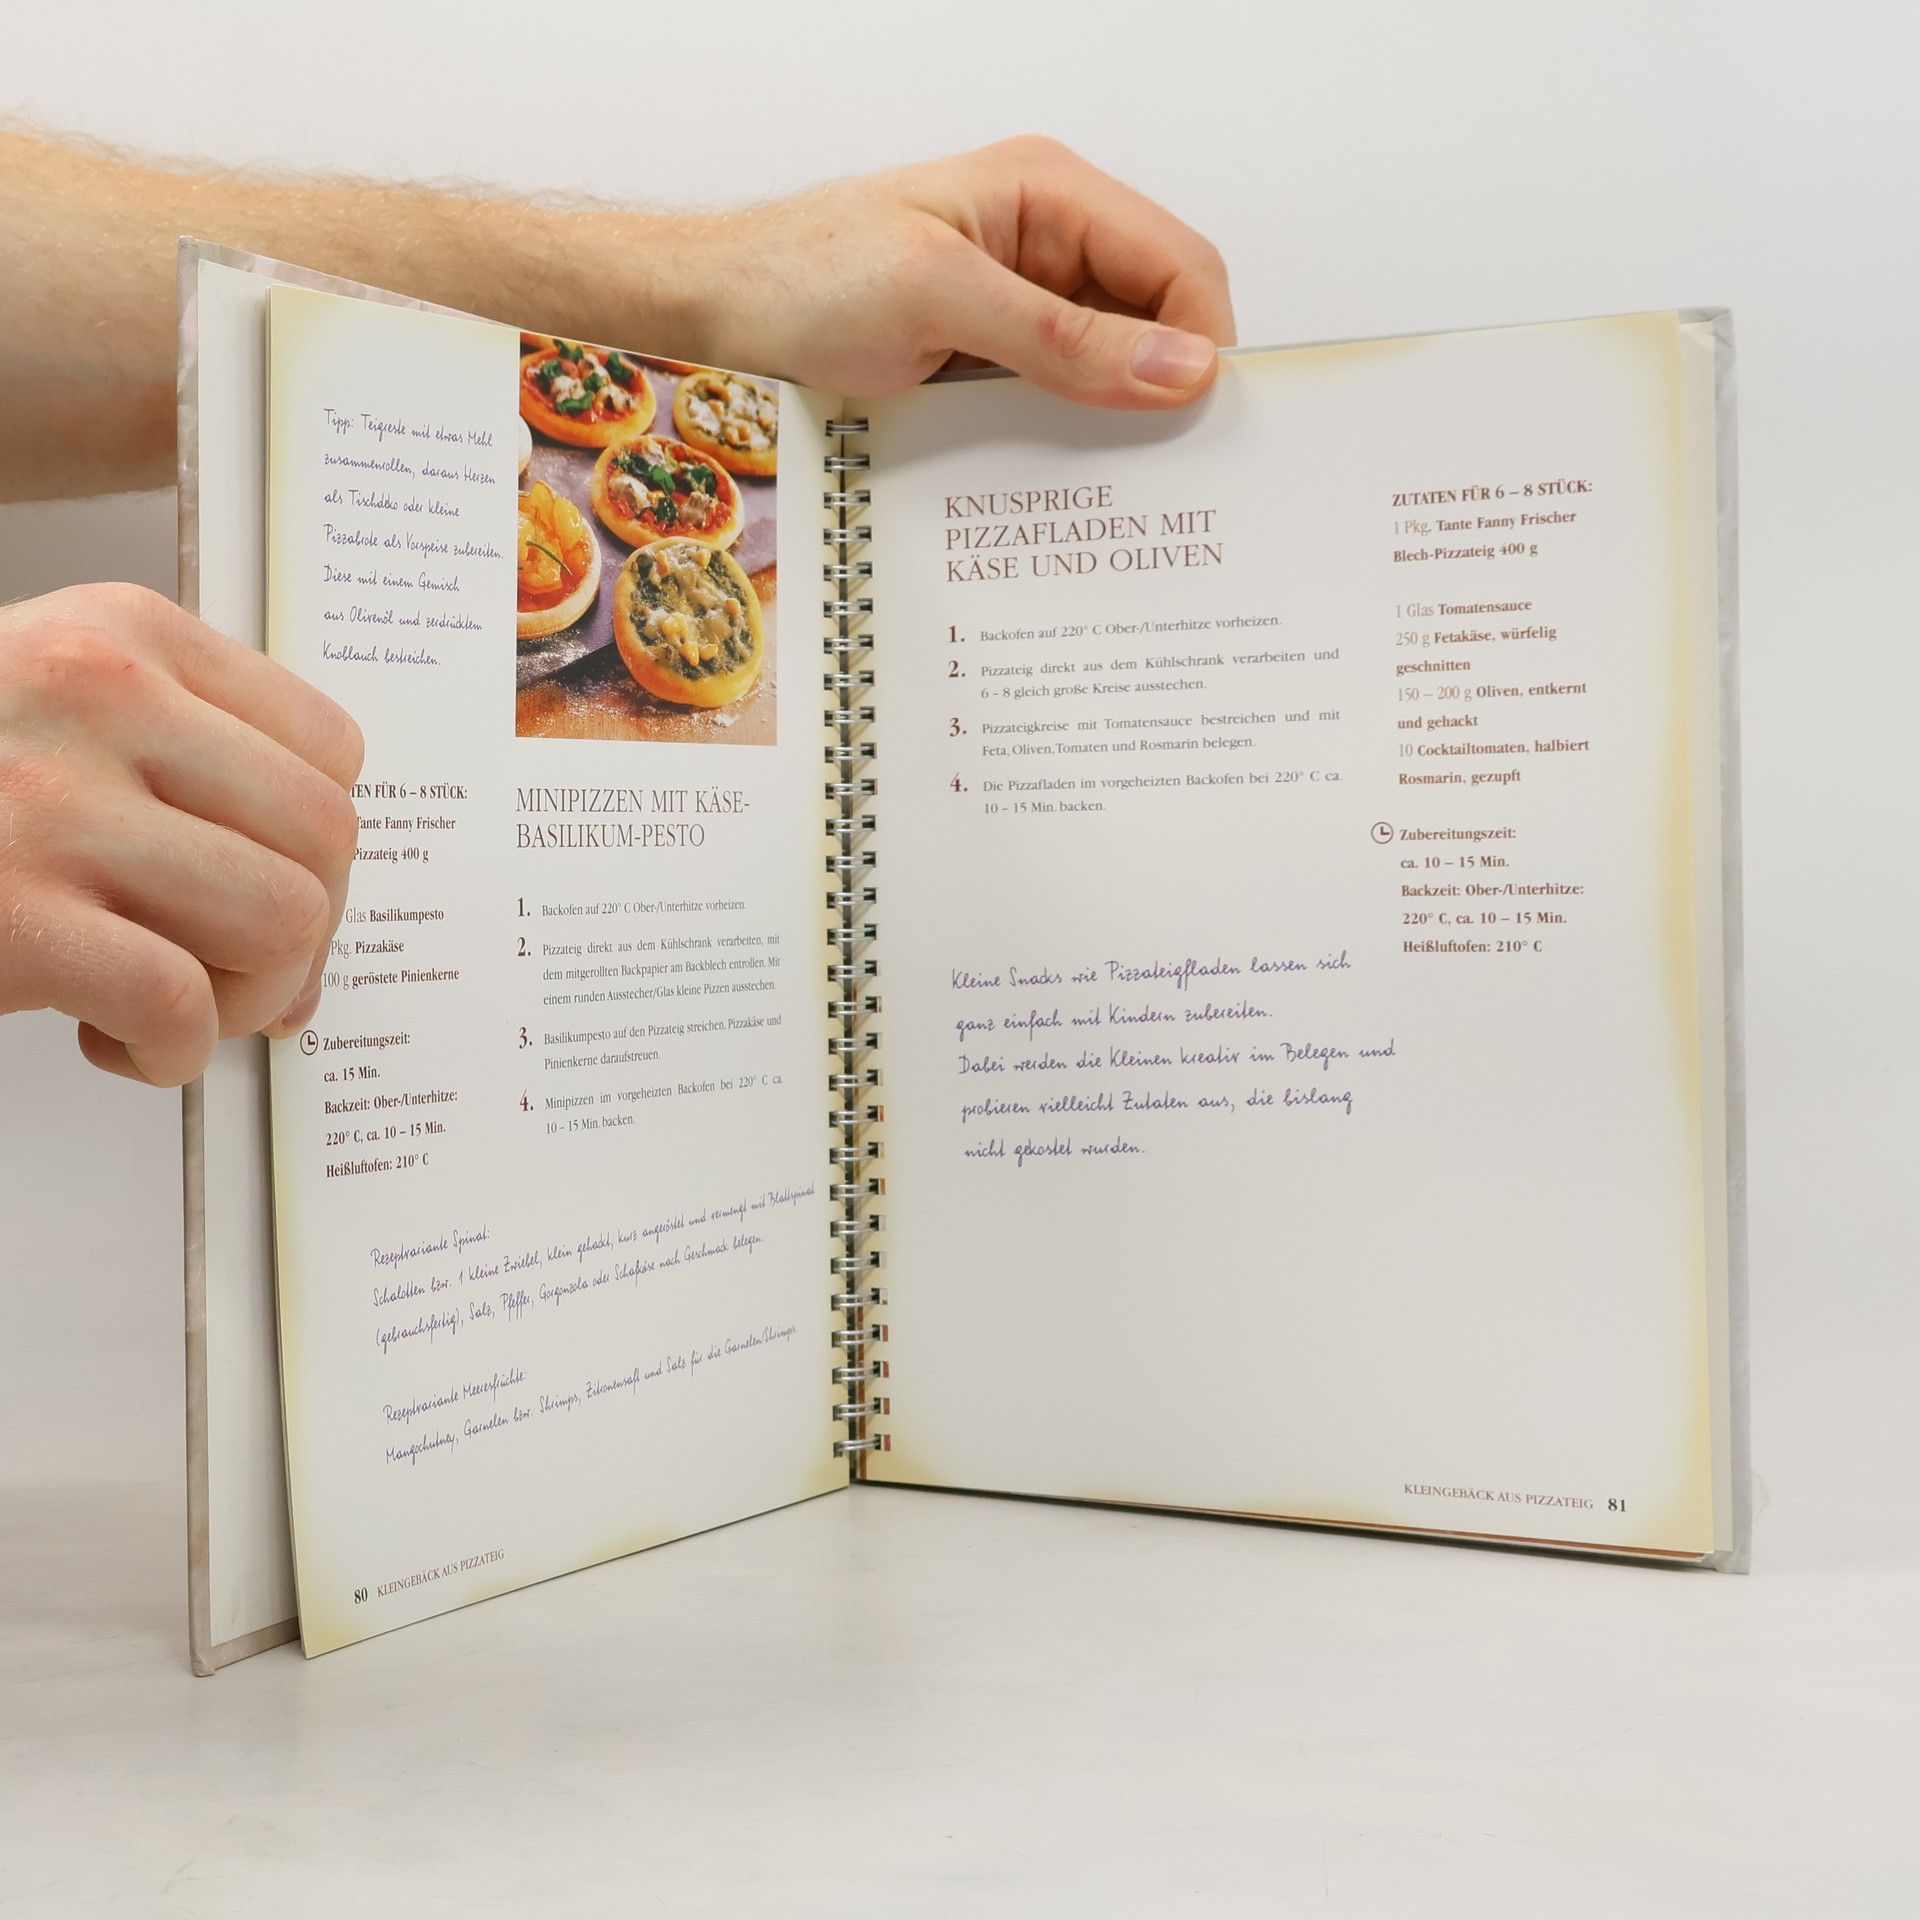 Tipp: Teigreste mit etwas Mehl
zusammenrollen, daraus Herzen
als Tischdeko oder kleine
Pizzabrote als Vorspeise zubereiten.
Diese mit einem Gemisch
aus Olivenöl und zerdrücktem
Knoblauch bestreichen.
FÜR 6 – 8 STÜCK:
Tante Fanny Frischer
Pizzateig 400 g
Glas Basilikumpesto
Pkg. Pizzakäse
100 g geröstete Pinienkerne
Zubereitungszeit:
ca. 15 Min.
Backzeit: Ober-/Unterhitze:
220° C, ca. 10 – 15 Min.
Heißluftofen: 210° C
MINIPIZZEN MIT KÄSE-
BASILIKUM-PESTO
1. Backofen auf 220° C Ober-/Unterhitze vorheizen.
2. Pizzateig direkt aus dem Kühlschrank verarbeiten, mit
dem mitgerollten Backpapier am Backblech entrollen. Mit
einem runden Ausstecher/Glas kleine Pizzen ausstechen.
3. Basilikumpesto auf den Pizzateig streichen. Pizzakäse und
Pinienkerne daraufstreuen.
4. Minipizzen im vorgeheizten Backofen bei 220° C ca.
10 - 15 Min. backen.
Rezeptvariante Spinat:
Schalotten bzw. 1 kleine Zwiebel, klein gehackt, kurz angeröstet und vermengt mit Blattspinat
(gebrauchsfertig), Salz, Pfeffer, Gorgonzola oder Schafkäse nach Geschmack belegen.
Rezeptvariante Meeresfrüchte:
Mangochutney, Garnelen bzw. Shrimps, Zitronensaft und Salz für die Garnelen/Shrimps.
80 KLEINGEBÄCK AUS PIZZATEIG
KNUSPRIGE
PIZZAFLADEN MIT
KÄSE UND OLIVEN
1. Backofen auf 220° C Ober-/Unterhitze vorheizen.
2. Pizzateig direkt aus dem Kühlschrank verarbeiten und
6 - 8 gleich große Kreise ausstechen.
3. Pizzateigkreise mit Tomatensauce bestreichen und mit
Feta, Oliven, Tomaten und Rosmarin belegen.
4. Die Pizzafladen im vorgeheizten Backofen bei 220° C ca.
10 - 15 Min. backen.
ZUTATEN FÜR 6 – 8 STÜCK:
1 Pkg. Tante Fanny Frischer
Blech-Pizzateig 400 g
1 Glas Tomatensauce
250 g Fetakäse, würfelig
geschnitten
150 – 200 g Oliven, entkernt
und gehackt
10 Cocktailtomaten, halbiert
Rosmarin, gezupft
Zubereitungszeit:
ca. 10 – 15 Min.
Backzeit: Ober-/Unterhitze:
220° C, ca. 10 – 15 Min.
Heißluftofen: 210° C
Kleine Snacks wie Pizzateigfladen lassen sich
ganz einfach mit Kindern zubereiten.
Dabei werden die Kleinen kreativ im Belegen und
probieren vielleicht Zutaten aus, die bislang
nicht gekostet wurden.
KLEINGEBÄCK AUS PIZZATEIG 81